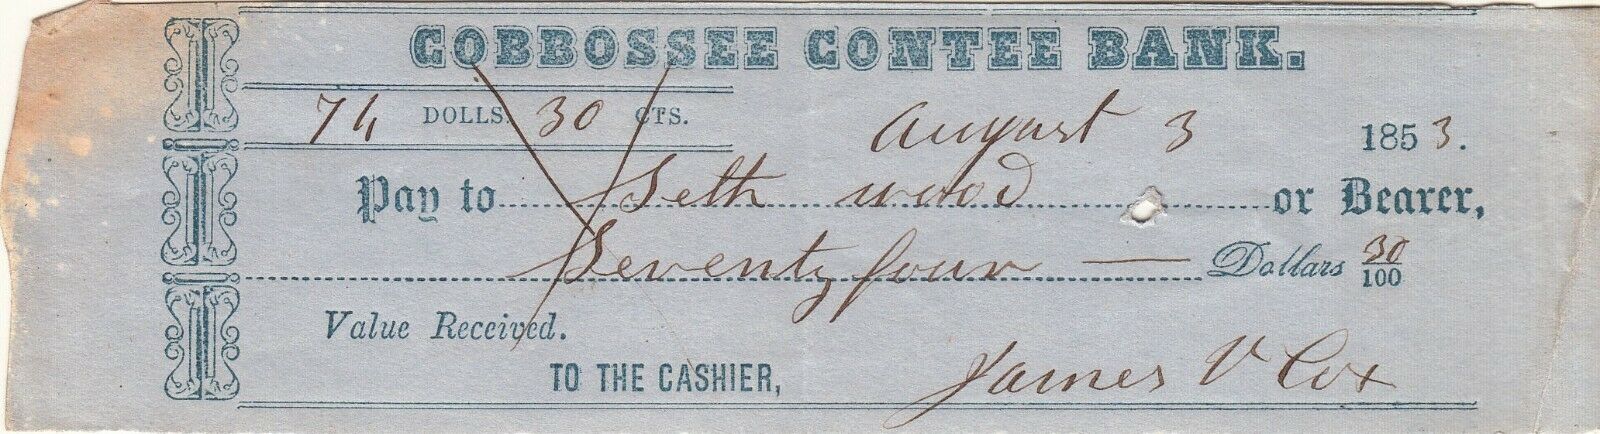 COBBOSSEE CONTEE BANK.
74 DOLLS. 30 CTS. August 3 1853.
Pay to Seth Wood or Bearer,
Seventy four — Dollars 30/100
Value Received.
TO THE CASHIER, James V Cox